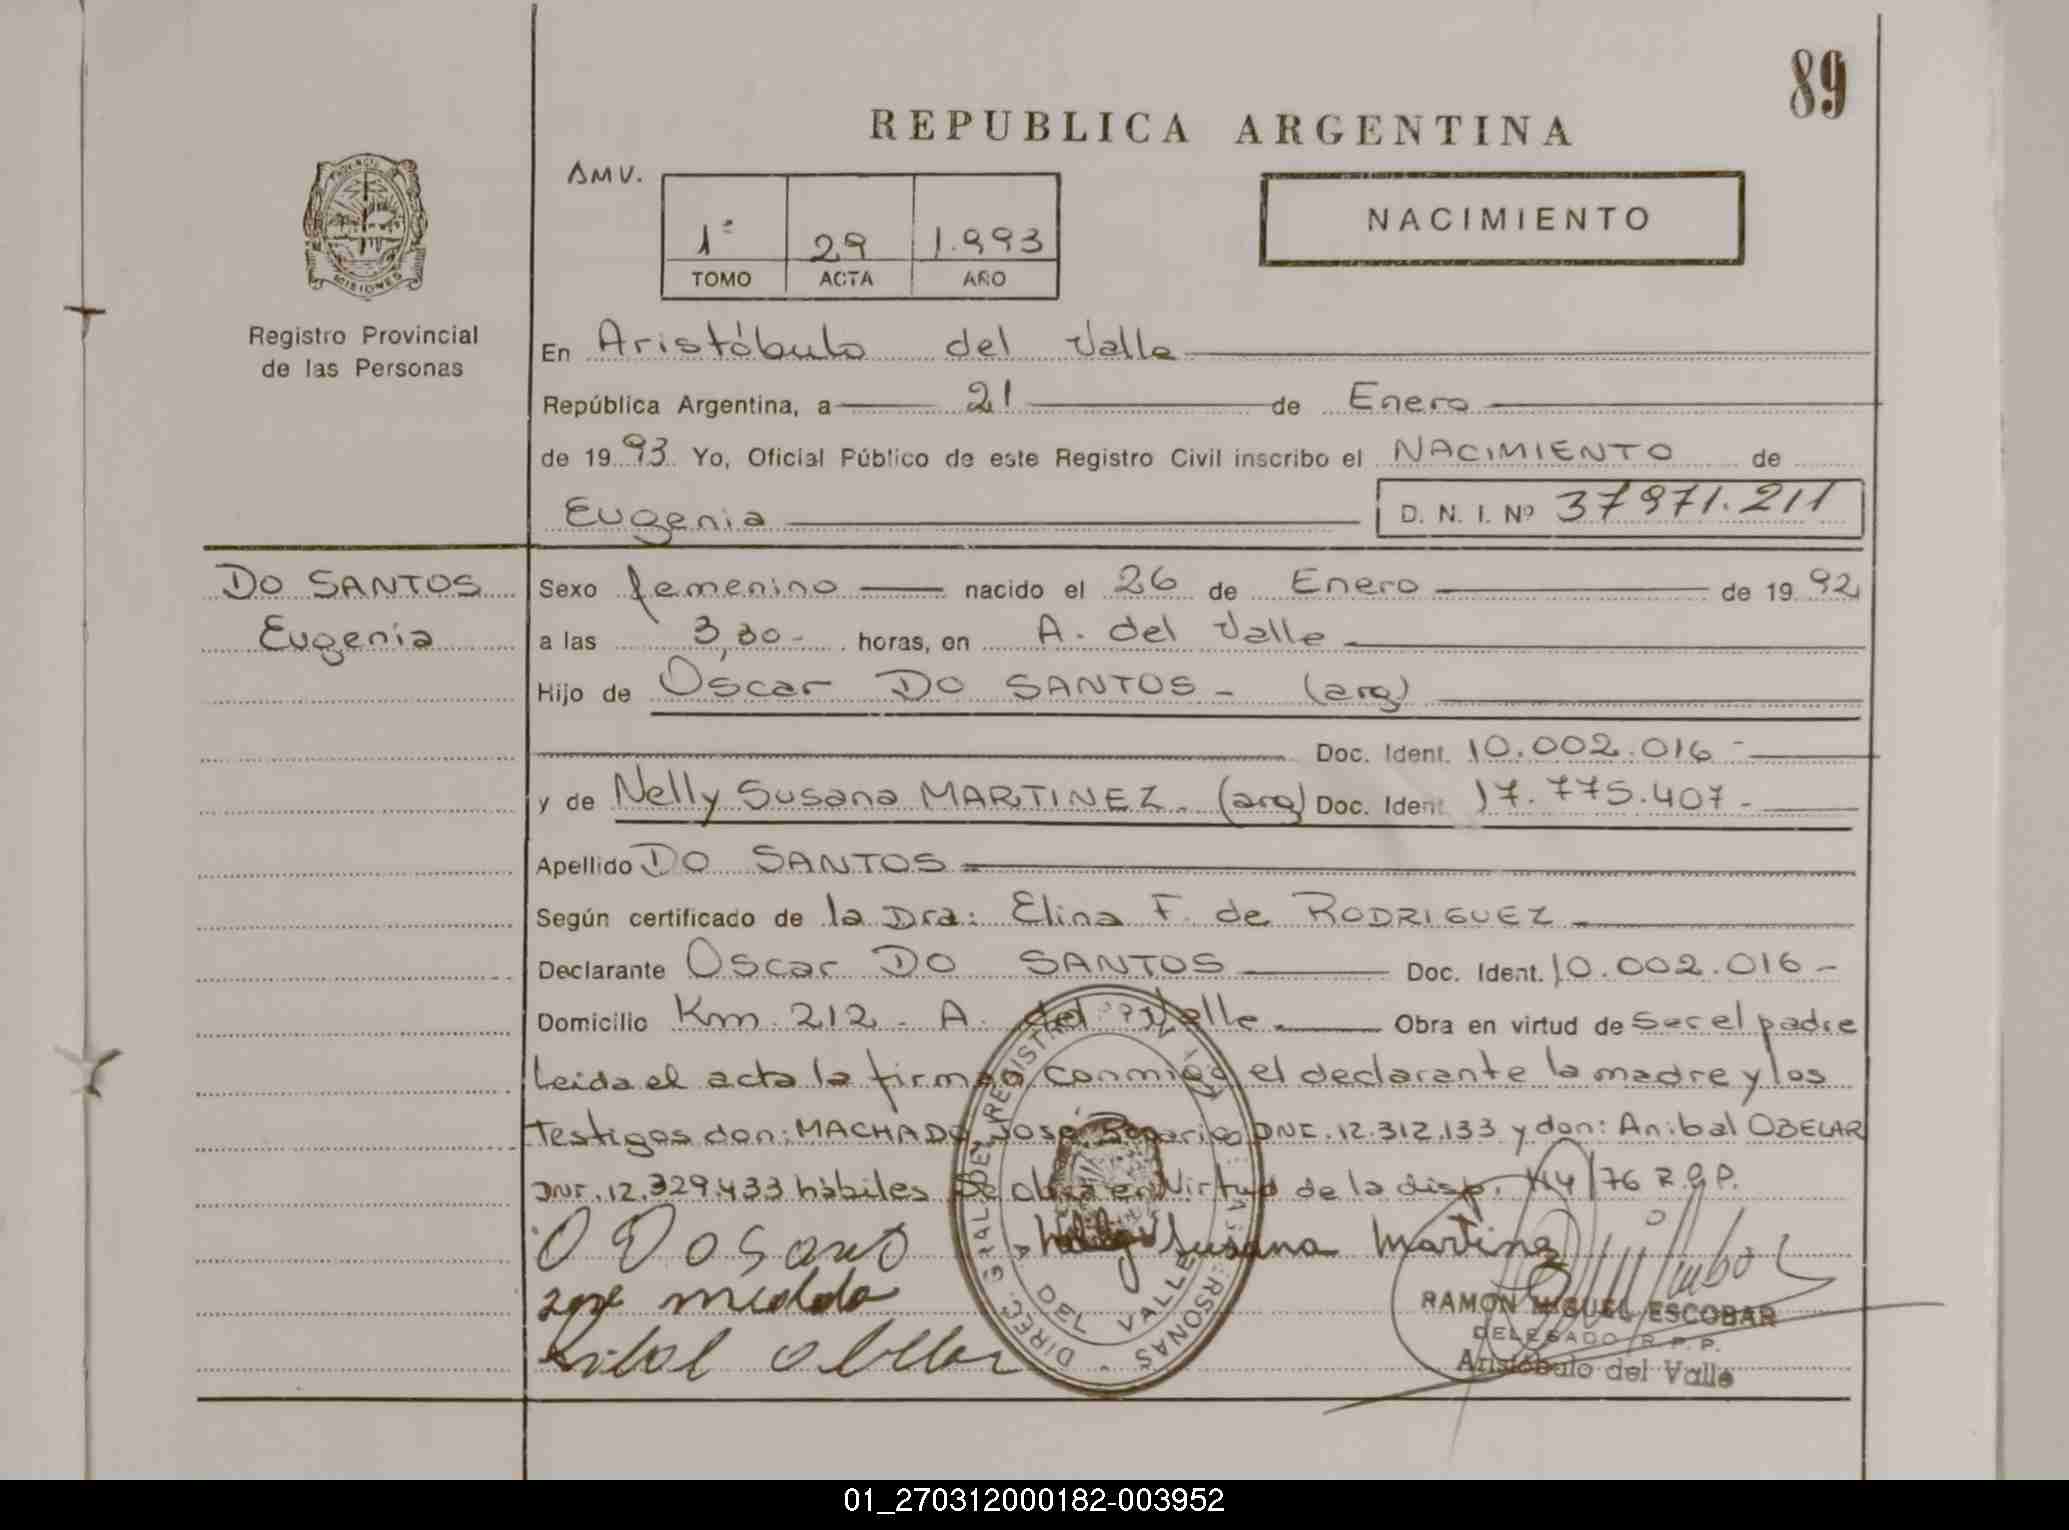 89
REPUBLICA ARGENTINA
AMV.
1º 29 1.993
TOMO ACTA AÑO
NACIMIENTO
PROVINCIA DE MISIONES
Registro Provincial
de las Personas
En Aristóbulo del Valle
República Argentina, a 21 de Enero
de 1993 Yo, Oficial Público de este Registro Civil inscribo el NACIMIENTO de
Eugenia D. N. I. Nº 37971.211
DO SANTOS
Eugenia
Sexo femenino nacido el 26 de Enero de 1992
a las 3,30- horas, en A. del Valle
Hijo de Oscar DO SANTOS - (arg)
Doc. Ident. 10.002.016-
y de Nelly Susana MARTINEZ. (arg) Doc. Ident. 17.775.407-
Apellido DO SANTOS
Según certificado de la Dra: Elina F. de RODRIGUEZ
Declarante Oscar DO SANTOS Doc. Ident. 10.002.016-
Domicilio Km. 212. A. del Valle Obra en virtud de ser el padre
Leida el acta la firman conmigo el declarante la madre y los
Testigos don: MACHADO, José DNI. 12.312.133 y don: Anibal OBELAR
DNI. 12.329.433 hábiles Se obra en Virtud de la disp. /76 R.G.P.
O Dosanto Susana Martinez
Anibal obelar
DIREC. GRAL DEL REGISTRO DE LAS PERSONAS
A DEL VALLE
RAMON MIGUEL ESCOBAR
DELEGADO R. P. P.
Aristóbulo del Valle
01_270312000182-003952